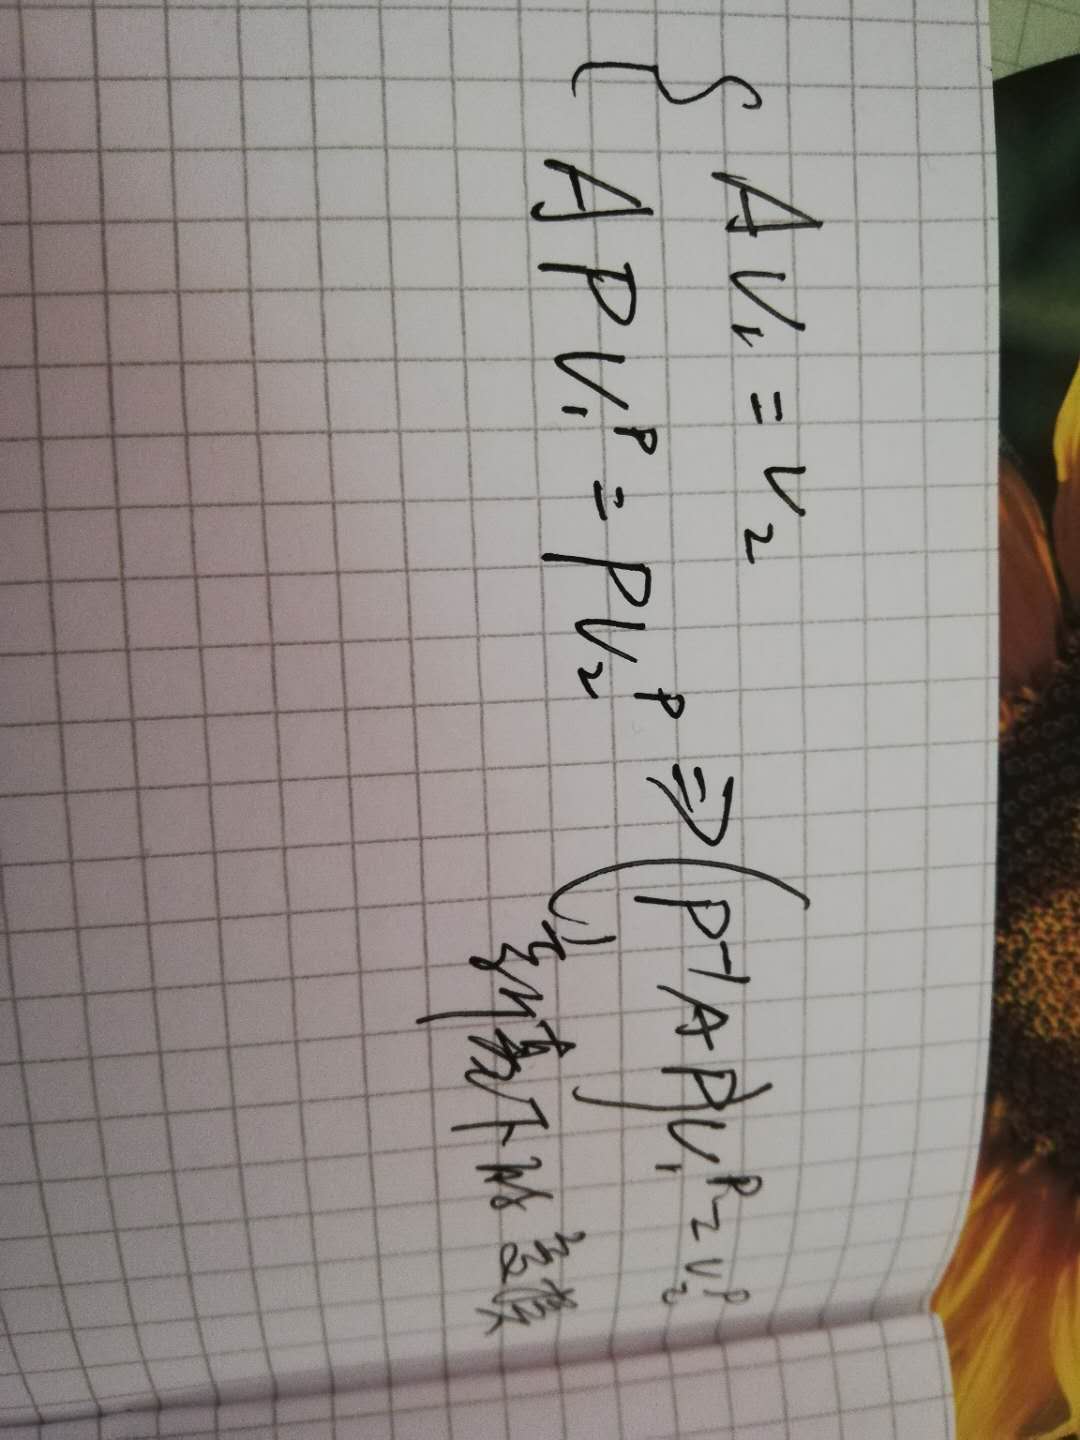 { A v₁ = v₂
A P v₁ᴾ = P v₂ᴾ ⇒ (P⁻¹ A P) v₁ᴾ = v₂ᴾ
下的变换